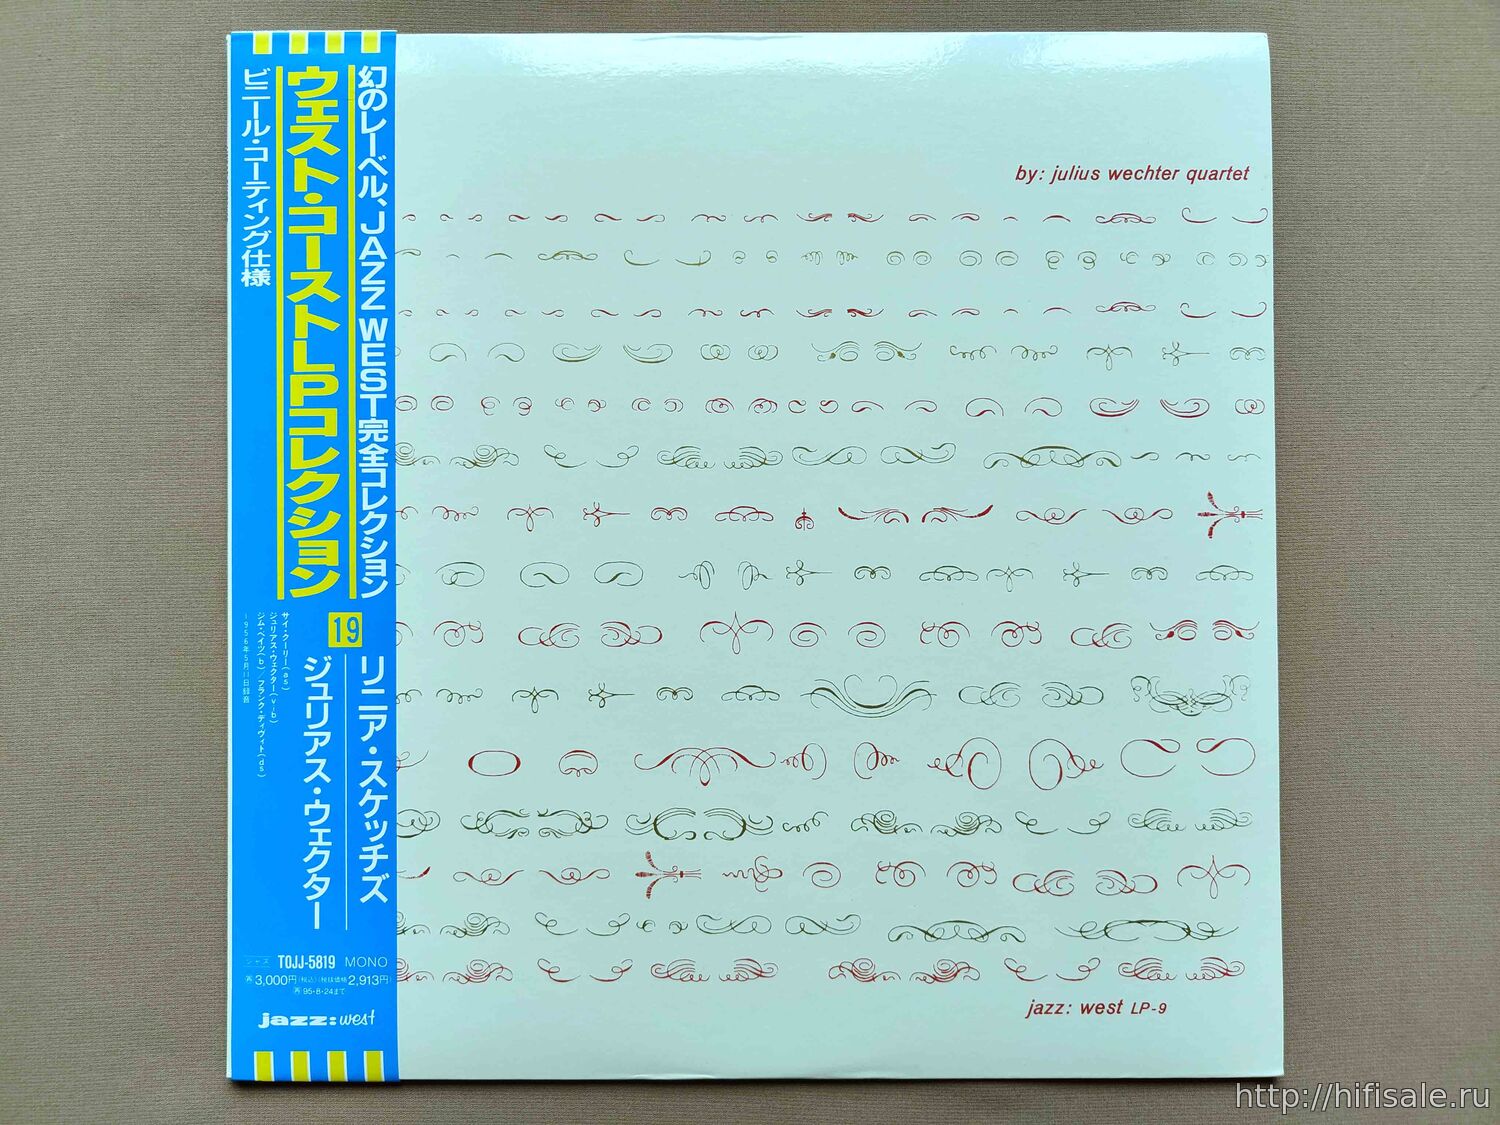 幻のレーベル、JAZZ WEST完全コレクション
ウエスト・コーストLPコレクション
ビニール・コーティング仕様
19
リニア・スケッチズ
ジュリアス・ウェクター
サイ・クーリー(as)
ジュリアス・ウェクター(vib)
ジム・ベイツ(b)／フランク・ディヴィト(ds)
1956年5月11日録音
ジャズ TOJJ-5819 MONO
再 3,000円(税込)(税抜価格2,913円)
再 95・8・24まで
jazz:west
by: julius wechter quartet
jazz: west LP-9
http://hifisale.ru